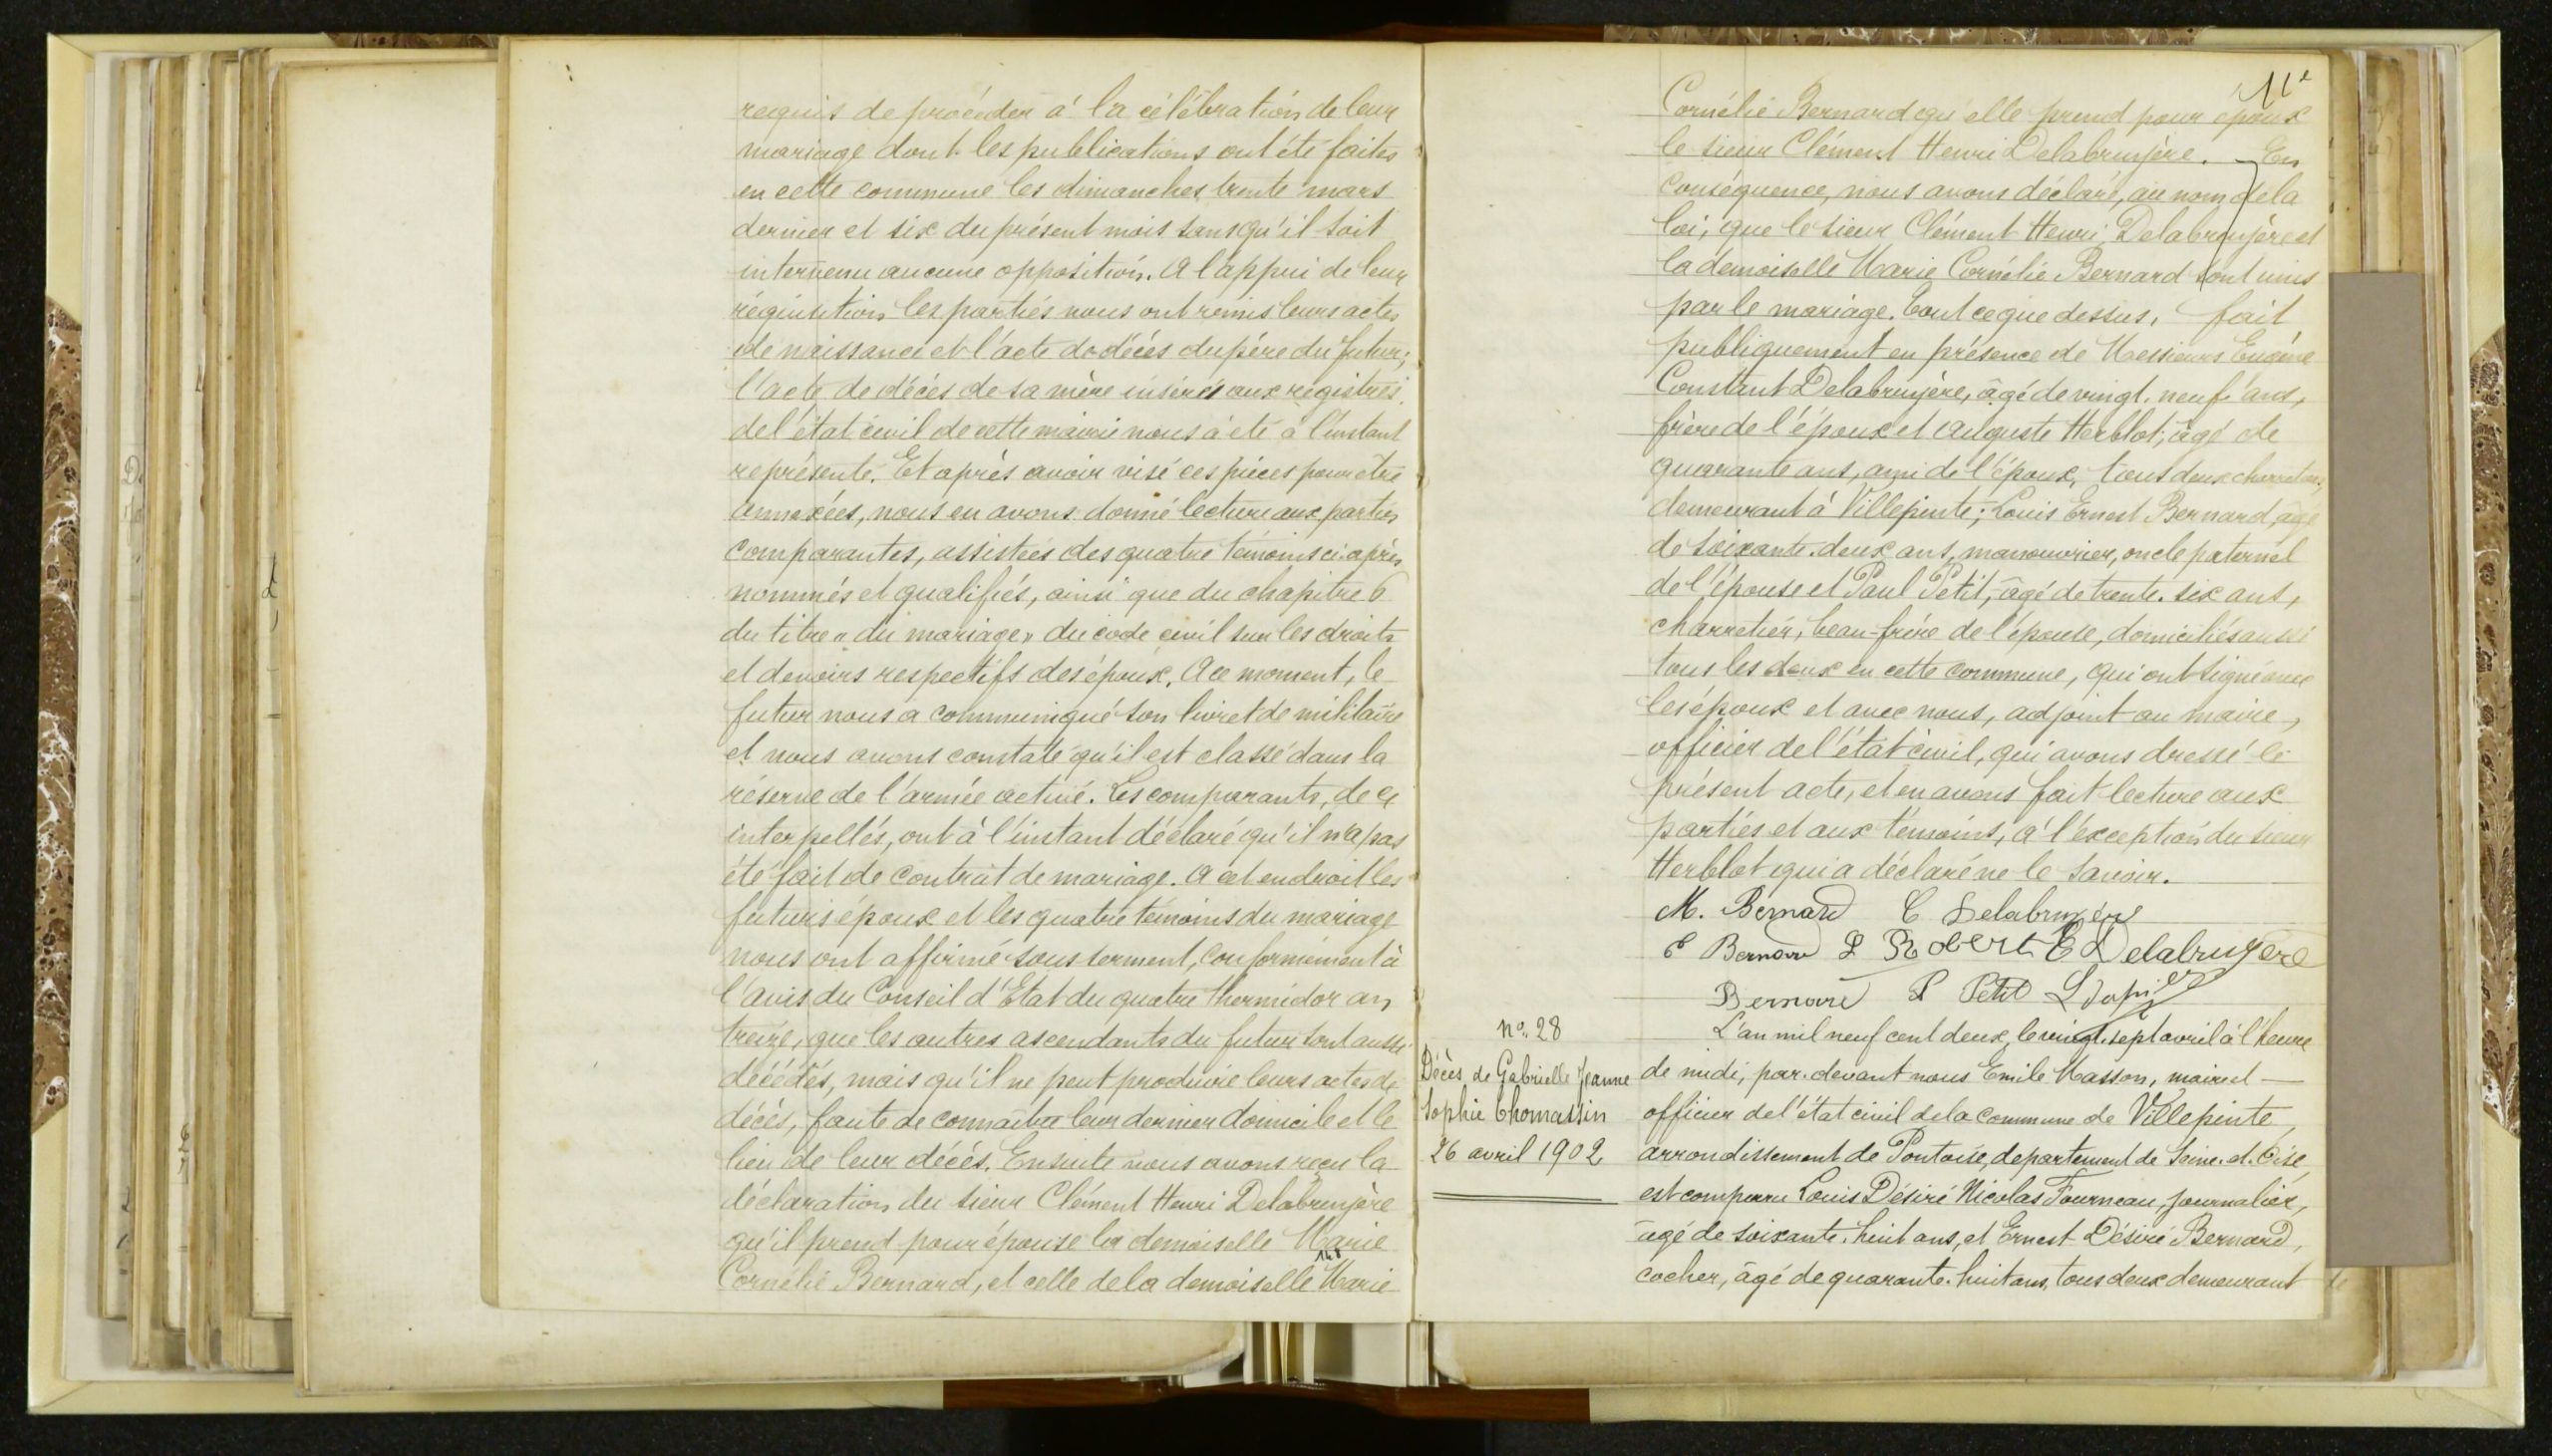 requis de procéder à la célébration de leur
mariage dont les publications ont été faites
en cette commune les dimanches trente mars
dernier et six du présent mois sans qu'il soit
intervenu aucune opposition. A l'appui de leur
réquisition les parties nous ont remis leurs actes
de naissance et l'acte de décès du père du futur;
l'acte de décès de sa mère inséré aux registres
de l'état civil de cette mairie nous a été à l'instant
représenté. Et après avoir visé ces pièces pour être
annexées, nous en avons donné lecture aux parties
comparantes, assistées des quatre témoins ci-après
nommés et qualifiés, ainsi que du chapitre 6
du titre « du mariage » du code civil sur les droits
et devoirs respectifs des époux. A ce moment, le
futur nous a communiqué son livret de militaire
et nous avons constaté qu'il est classé dans la
réserve de l'armée active. Les comparants, de ce
interpellés, ont à l'instant déclaré qu'il n'a pas
été fait de contrat de mariage. A cet endroit les
futurs époux et les quatre témoins du mariage
nous ont affirmé sous serment, conformément à
l'avis du Conseil d'Etat du quatre thermidor an
treize, que les autres ascendants du futur sont aussi
décédés, mais qu'il ne peut produire leurs actes de
décès, faute de connaître leur dernier domicile et le
lieu de leur décès. Ensuite nous avons reçu la
déclaration du sieur Clément Henri Delabruyère
qu'il prend pour épouse la demoiselle Marie
Cornélie Bernard, et celle de la demoiselle Marie
11e
Cornélie Bernard qu'elle prend pour époux
le sieur Clément Henri Delabruyère. En
conséquence, nous avons déclaré, au nom de la
loi, que le sieur Clément Henri Delabruyère et
la demoiselle Marie Cornélie Bernard sont unis
par le mariage. Tout ce que dessus, fait
publiquement en présence de Messieurs Eugène
Constant Delabruyère, âgé de vingt-neuf ans,
frère de l'époux et Auguste Herblot, âgé de
quarante ans, ami de l'époux, tous deux charretiers,
demeurant à Villepinte; Louis Ernest Bernard, âgé
de soixante-deux ans, manouvrier, oncle paternel
de l'épouse et Paul Petit, âgé de trente-six ans,
charretier, beau-frère de l'épouse, domiciliés aussi
tous les deux en cette commune, qui ont signé avec
les époux et avec nous, adjoint au maire,
officier de l'état civil, qui avons dressé le
présent acte, et en avons fait lecture aux
parties et aux témoins, à l'exception du sieur
Herblot qui a déclaré ne le savoir.
M. Bernard C Delabruyère
E Bernard L Robert E Delabruyère
Bernard P Petit
nº 28
Décès de Gabrielle Jeanne
Sophie Thomassin
26 avril 1902
L'an mil neuf cent deux, le vingt-sept avril à l'heure
de midi, par-devant nous Emile Masson, maire et
officier de l'état civil de la commune de Villepinte,
arrondissement de Pontoise, departement de Seine-et-Oise,
est comparu Louis Désiré Nicolas Fourneau, journalier,
âgé de soixante-huit ans, et Ernest Désiré Bernard,
cocher, âgé de quarante-huit ans, tous deux demeurant